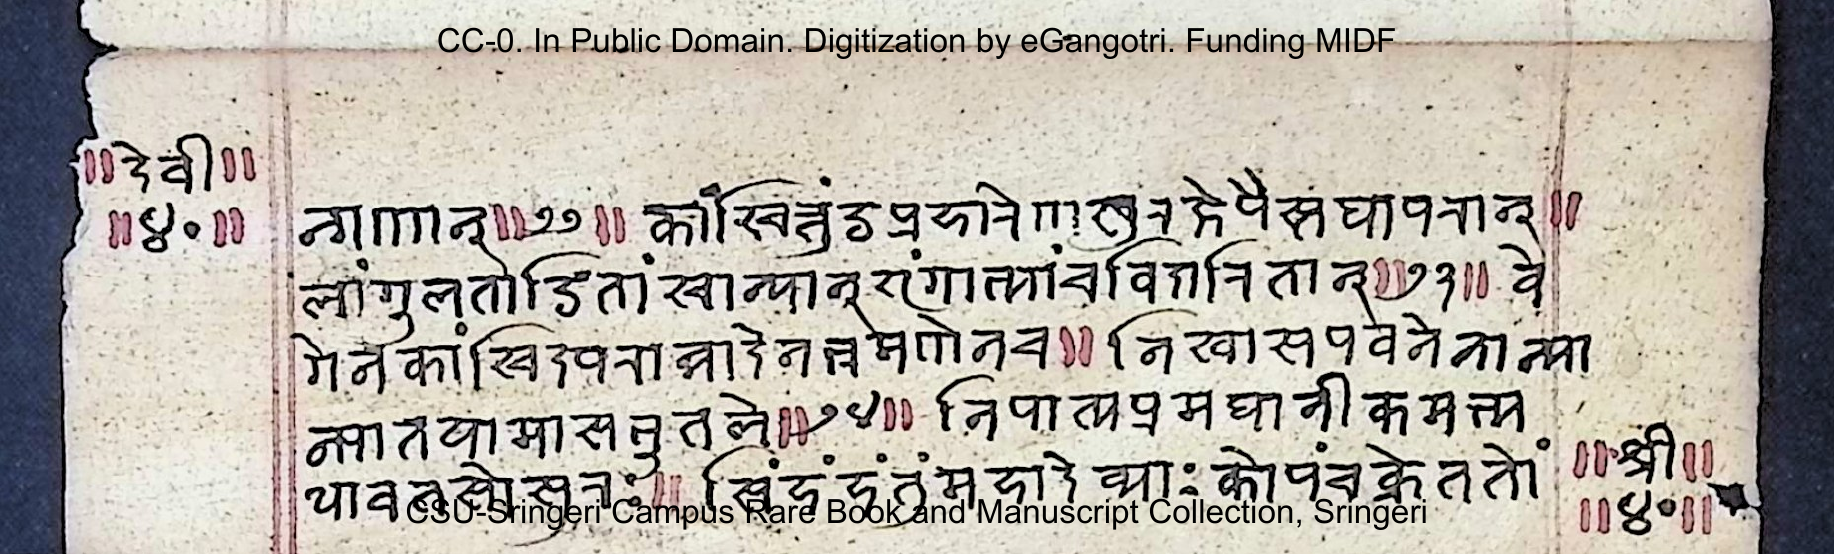 CC-0. In Public Domain. Digitization by eGangotri. Funding MIDF
॥देवी॥
॥४०॥
न्गणान्॥७२॥ कांश्चित्तुंडप्रहारेणखुरक्षेपैस्तथापरान्॥
लांगुलताडितांश्चान्यान्शृंगाभ्यांचविदारितान्॥७३॥ वे
गेनकांश्चिदपरान्नादेनभ्रमणेनच॥ निश्वासपवनेनान्या
न्पातयामासभुतले॥७४॥ निपात्यप्रमथानीकमभ्य
धावतसोसुरः॥ सिंहंहंतुंमहादेव्याःकोपंचक्रेततों
॥श्री॥
॥४०॥
CSU-Sringeri Campus Rare Book and Manuscript Collection, Sringeri